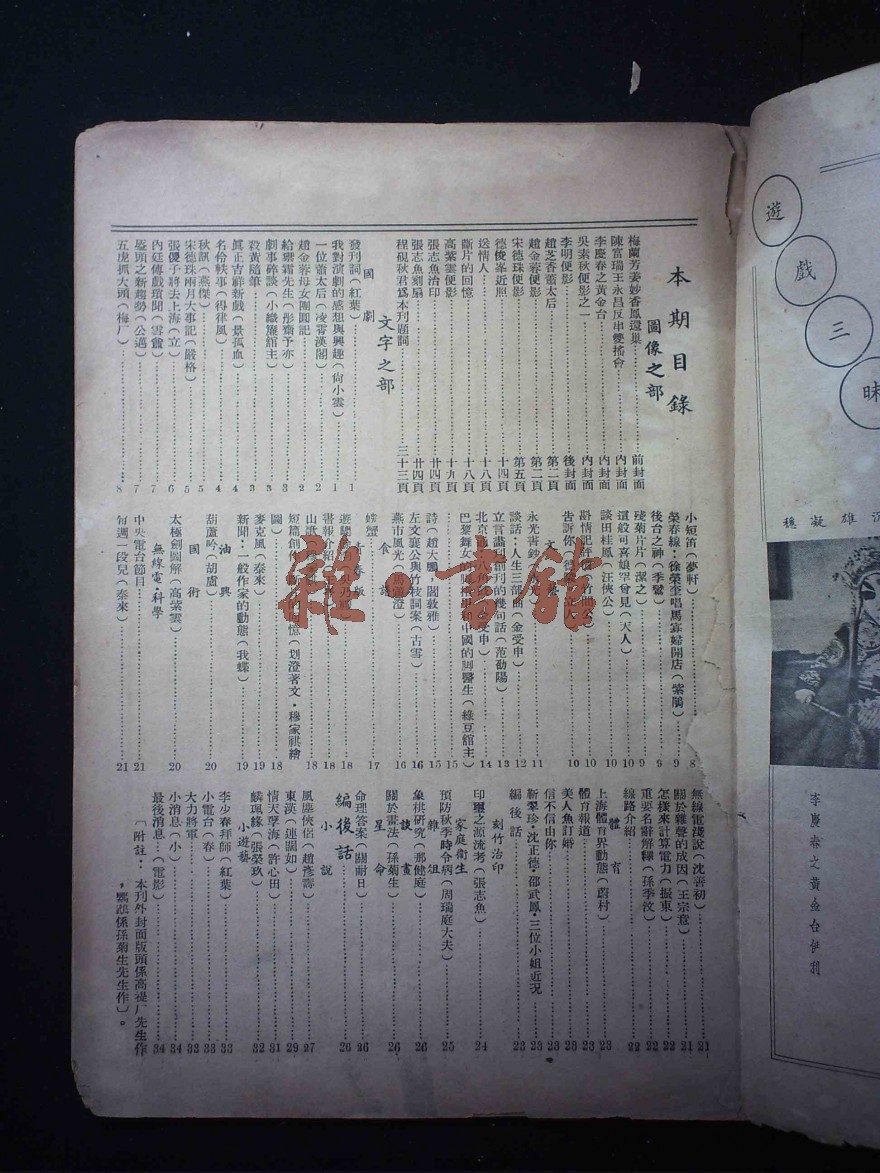 本期目錄
圖像之部
梅蘭芳姜妙香鳳還巢……前封面
陳富瑞王永昌反串雙搖會……內封面
李慶春之黃金台……內封面
吳素秋便影之一……內封面
李明便影……後封面
趙芝香蕭太后……第二頁
趙金蓉便影……第二頁
宋德珠便影……第五頁
德俊峯近照……十四頁
送情人……十八頁
斷片的回憶……十八頁
高紫雲便影……十九頁
張志魚治印……廿四頁
張志魚刻扇……廿四頁
程硯秋君爲本刊題詞……三十三頁
文字之部
國劇
發刊詞(紅葉)……1
我對演劇的感想與興趣(尙小雲)……1
一位蕭太后(凌霄漢閣)……2
趙金蓉母女團圓記……2
給嬛霜先生(彤齋予亦)……3
劇事碎談(小織簾舘主)……3
殺黃隨筆……3
眞正吉祥新戲(景孤血)……4
名伶軼事(得律風)……4
秋訊(燕傑)……5
宋德珠兩月大事記(嚴格)……5
張傻子將去上海(立)……6
內廷傳戲瑣聞(雪儂)……6
屋頭之新趨勢(公邁)……7
五虎抓大頭(梅厂)……8
小短笛(夢軒)……8
榮春線·徐榮奎唱馬寡婦開店(紫鵑)……9
後台之神(季鸞)……9
殘菊片片(潔之)……9
還般可喜娘罕曾見(天人)……10
談田桂鳳(汪俠公)……10
……10
告訴你……10
文藝
永光書鈔……11
談話·人生三部曲(金受申)……12
立言畫刊創刊的幾句話(范劭陽)……13
北京……(金受申)……14
巴黎舞女的……和中國的脚醫生(綠豆舘主)……15
詩(趙大鵬,閻敦雅)……15
左文襄公與竹枝詞案(古雪)……16
燕市風光……16
食譜
螃蟹……17
青春版
遊……18
書報介紹……18
山歌……18
短篇創作……的回憶(划澄著文·穆家祺繪圖)……18
麥克風(泰來)……19
新聞·一般作家的動態(我蝶)……19
油輿
葫蘆吟(胡盧)……20
國術
太極劍圖解(高紫雲)……20
無線電·科學
中央電台節目……21
每週一段兒(泰來)……21
無線電淺說(沈善初)……21
關於雜聲的成因(王宗意)……21
怎樣來計算電力(振東)……22
重要名辭解釋(孫季汶)……22
線路介紹……22
體育
上海體育界動態(蔚村)……23
體育報道……23
美人魚訂婚……23
信不信由你……23
新翠珍·沈正德·邵武鳳·三位小姐近況……23
編後話……23
刻竹治印
印璽之源流考(張志魚)……24
家庭衛生
預防秋季時令病(周瑞庭大夫)……25
雜俎
象棋研究(那健庭)……26
談畫
關於畫法(孫菊生)……26
星命
命理答案(關耐日)……26
編後話……26
小說
風塵俠侶(趙彥壽)……27
東漢(連闊如)……29
情天孽海(許心田)……31
麟現緣(張榮玖)……32
小遊藝
李少春拜師(紅葉)……33
小電台(春)……33
大力將軍……33
小消息(小)……34
最後消息(電影)……34
〔附註:本刊外封面版頭係高褆厂先生作
,鸚鵡係孫菊生先生作〕。
遊戲三昧
穩凝雄沉
李慶春之黃金台伊利
雜·書館